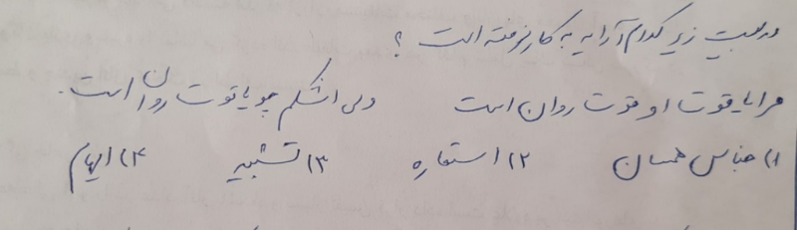 در بیت زیر کدام آرایه به کار نرفته است ؟
مرا یاقوت او قوت روان است ولی اشکم چو یاقوت روان است.
۱) جناس همسان ۲) استعاره ۳) تشبیه ۴) ایهام